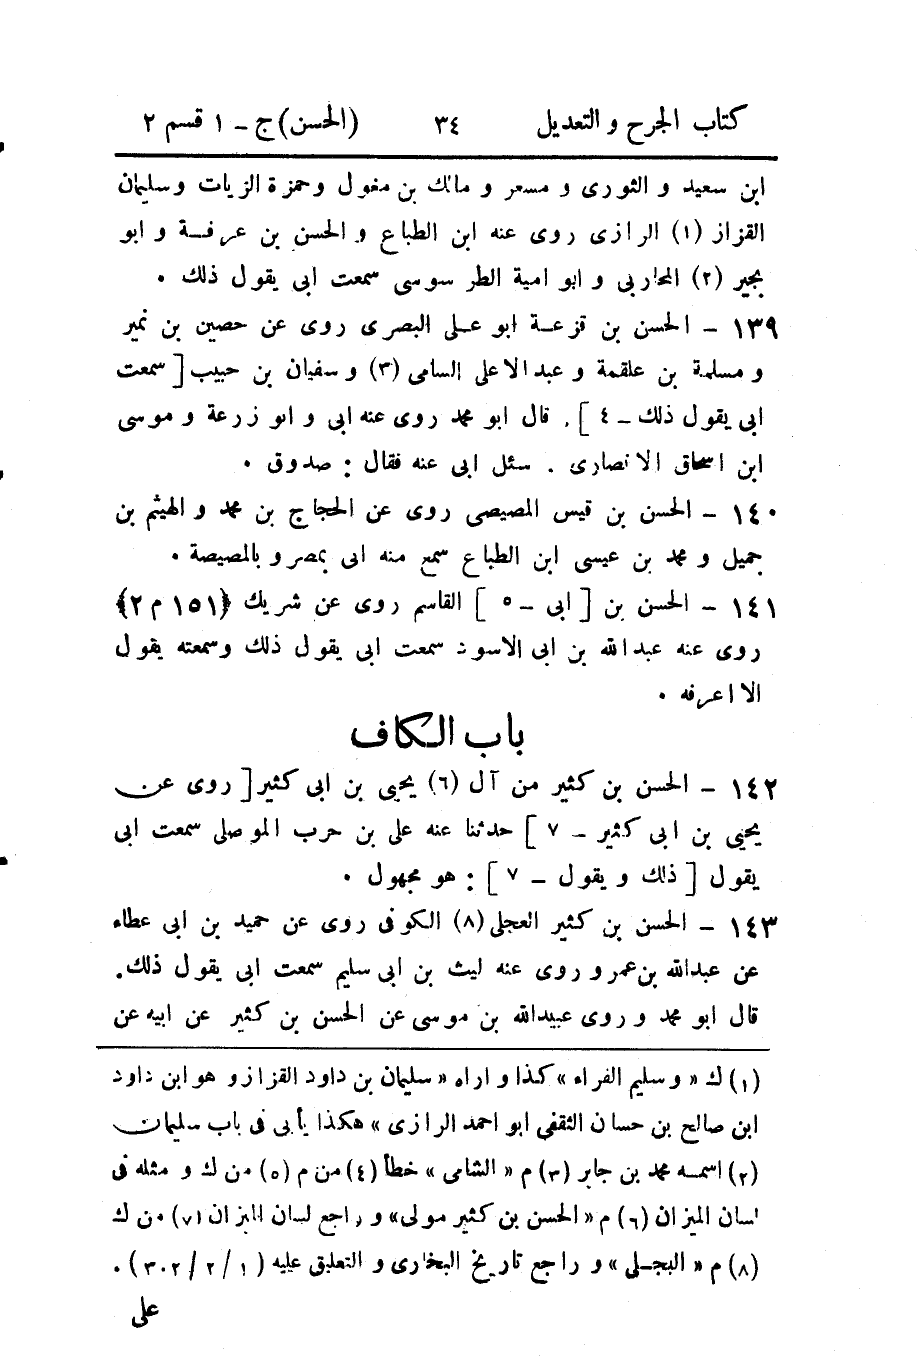 كتاب الجرح و التعديل ٣٤ (الحسن) ج - ١ قسم ٢
ابن سعيد و الثورى و مسعر و مالك بن مغول وحمزة الزيات وسليمان
القزاز (١) الرازى روى عنه ابن الطباع و الحسن بن عرفة و ابو
بجير (٢) المحاربى و ابو امية الطرسوسى سمعت ابى يقول ذلك .
١٣٩ - الحسن بن قزعة ابو على البصرى روى عن حصين بن نمير
و مسلمة بن علقمة و عبد الاعلى السامى (٣) و سفيان بن حبيب [ سمعت
ابى يقول ذلك - ٤ ] . قال ابو محمد روى عنه ابى و ابو زرعة و موسى
ابن اسحاق الانصارى . سئل ابى عنه فقال : صدوق .
١٤٠ - الحسن بن قيس المصيصى روى عن الحجاج بن محمد و الهيثم بن
جميل و محمد بن عيسى ابن الطباع سمع منه ابى بمصر و بالمصيصة .
١٤١ - الحسن بن [ ابى - ٥ ] القاسم روى عن شريك ﴿١٥١ م ٢﴾
روى عنه عبد الله بن ابى الاسود سمعت ابى يقول ذلك وسمعته يقول
لا اعرفه .
باب الكاف
١٤٢ - الحسن بن كثير من آل (٦) يحيى بن ابى كثير [ روى عن
يحيى بن ابى كثير - ٧ ] حدثنا عنه على بن حرب الموصلى سمعت ابى
يقول [ ذلك و يقول - ٧ ] : هو مجهول .
١٤٣ - الحسن بن كثير العجلى (٨) الكوفى روى عن حميد بن ابى عطاء
عن عبدالله بن عمرو روى عنه ليث بن ابى سليم سمعت ابى يقول ذلك.
قال ابو محمد و روى عبيدالله بن موسى عن الحسن بن كثير عن ابيه عن
(١) ك « و سليم الفراء » كذا و اراه « سليمان بن داود القزاز و هو ابن داود
ابن صالح بن حسان الثقفى ابو احمد الرازى » هكذا يأتى فى باب سليمان
(٢) اسمه محمد بن جابر (٣) م « الشامى » خطأ (٤) من م (٥) من ك و مثله فى
لسان الميزان (٦) م « الحسن بن كثير مولى » و راجع لسان الميزان (٧) من ك
(٨) م « البجلى » و راجع تاريخ البخارى و التعليق عليه ( ١ / ٢ / ٣٠٢ ) .
على